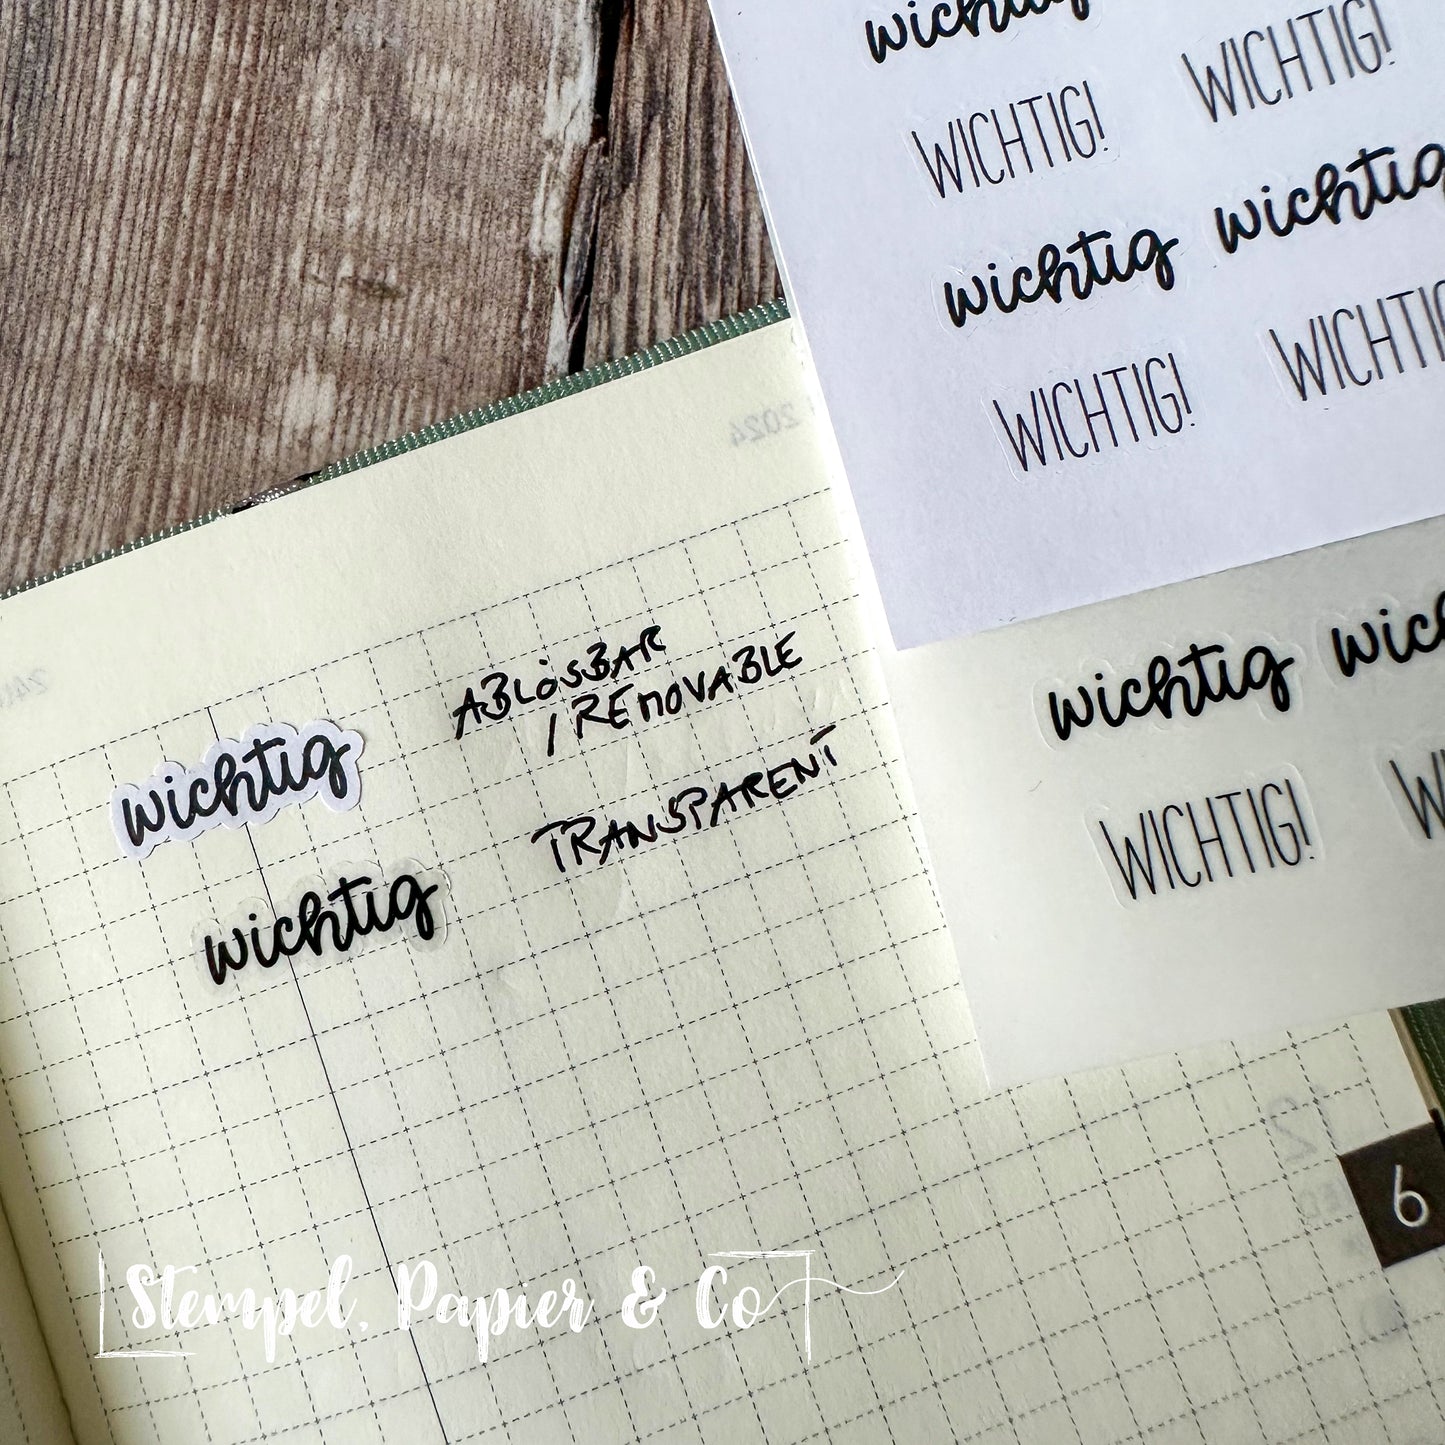 wichtig
WICHTIG! WICHTIG!
wichtig wichtig
WICHTIG! WICHTIG
2024
wichtig
WICHTIG!
ABLÖSBAR
/ REMOVABLE
wichtig
TRANSPARENT
wichtig
6
Stempel, Papier & Co